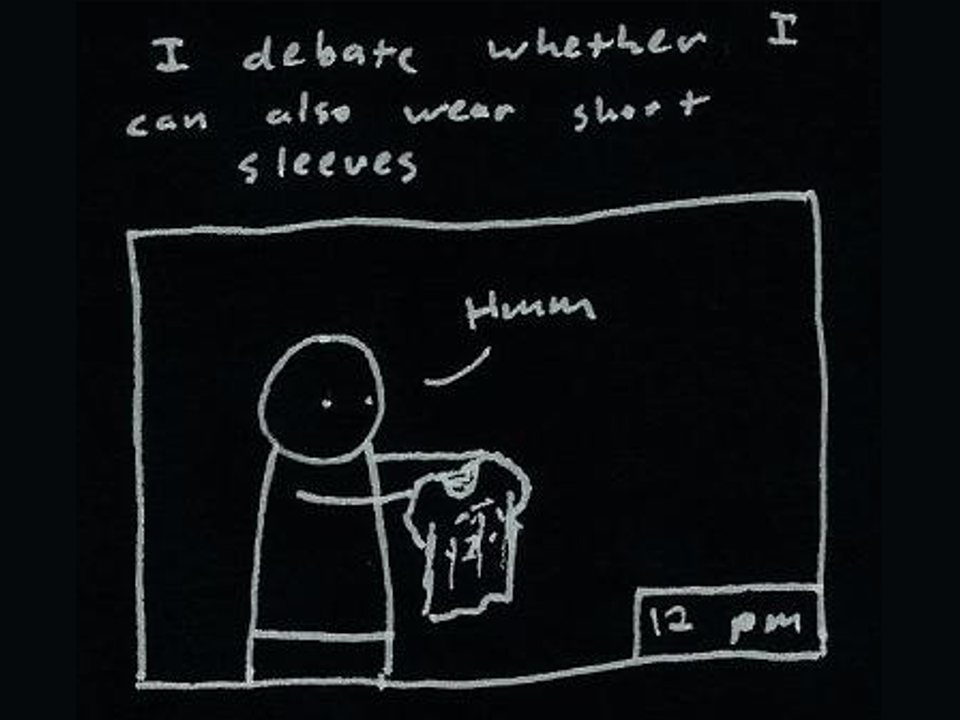 I debate whether I
can also wear short
sleeves
Hmmm
12 pm